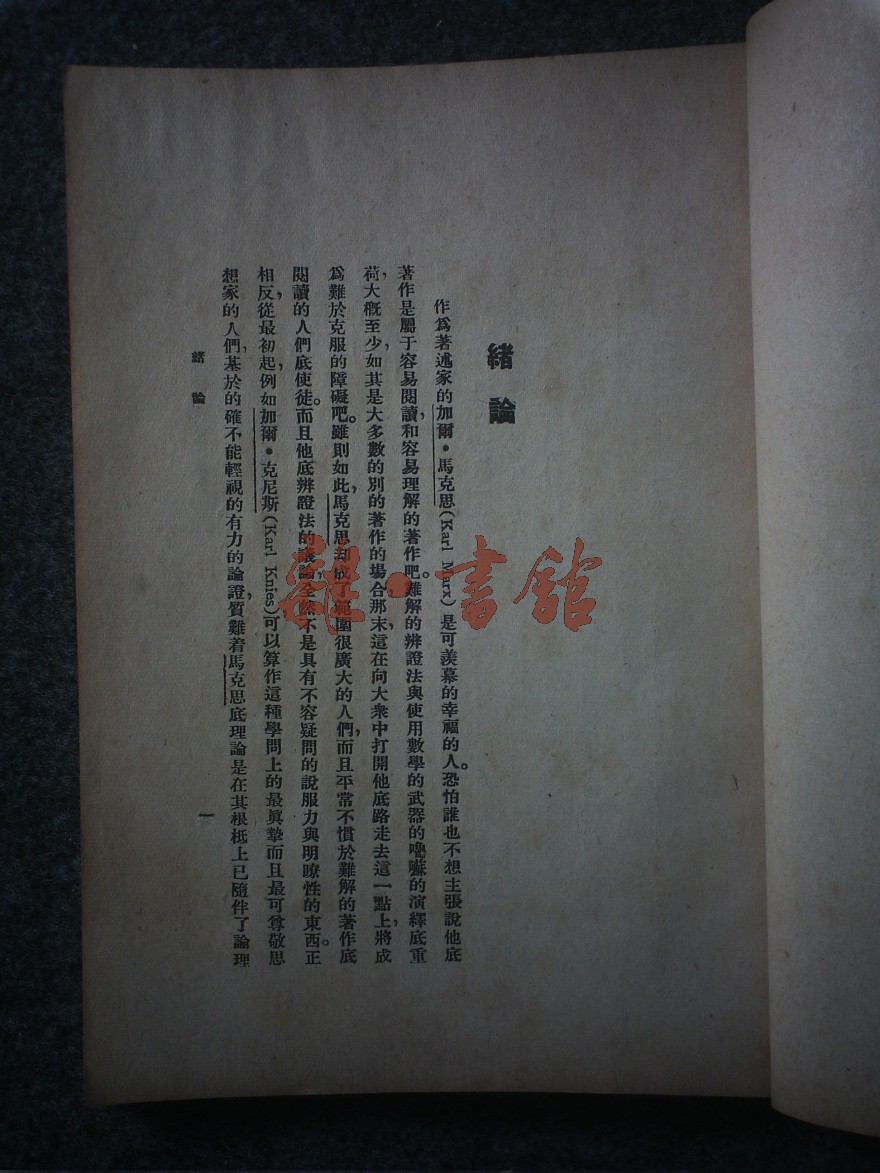 緒論
作爲著述家的加爾•馬克思(Karl Marx)是可羨慕的幸福的人。恐怕誰也不想主張說他底
著作是屬于容易閱讀,和容易理解的著作吧。難解的辨證法與使用數學的武器的嚕囌的演繹底重
荷,大概至少如其是大多數的別的著作的場合那末,這在向大衆中打開他底路走去這一點上,將成
爲難於克服的障礙吧。雖則如此,馬克思却成了範圍很廣大的人們,而且平常不慣於難解的著作底
閱讀的人們底使徒。而且他底辨證法的議論,全然不是具有不容疑問的說服力與明瞭性的東西。正
相反,從最初起,例如加爾•克尼斯(Karl Knies)可以算作這種學問上的最眞摯而且最可尊敬思
想家的人們,基於的確不能輕視的有力的論證,質難着馬克思底理論是在其根柢上已隨伴了論理
緒論
一
雜•書館